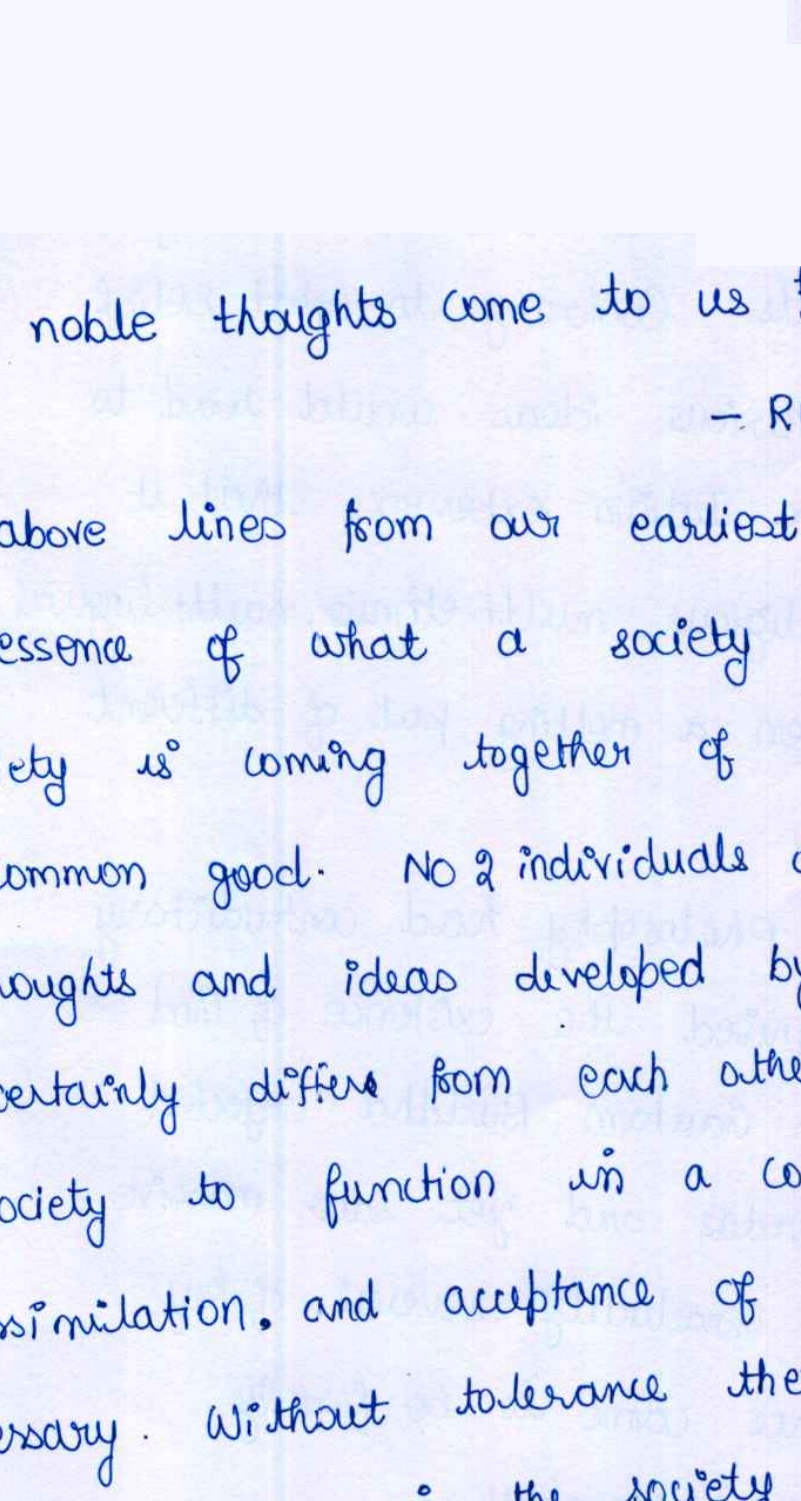 noble thoughts come to us
— R
above lines from our earliest
essence of what a society
ety is coming together of
ommon good. No 2 individuals
oughts and ideas developed by
certainly differs from each othe
ociety to function in a co
ssimilation, and acceptance of
essary. Without tolerance the
the society